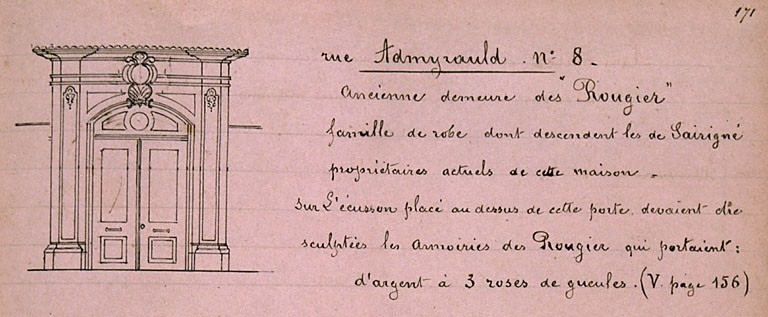 171
rue Admyrauld. n° 8.
Ancienne demeure des "Rougier"
famille de robe dont descendent les de Sairigné
propriétaires actuels de cette maison.
Sur l'écusson placé au dessus de cette porte, devaient être
sculptées les Armoiries des Rougier qui portaient :
d'argent à 3 roses de gueules. (V. page 156)